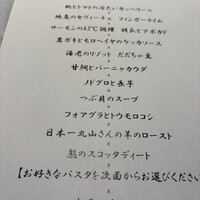 桃とトマトの冷たいカッペリーニ
地魚のセヴィーチェ フィンガーライム
サーモンの43℃調理 胡瓜とアボカド
岩ガキとモロヘイヤのケッカソース
海老のリゾット だだちゃ豆
甘鯛とバーニャカウダ
ノドグロと長芋
つぶ貝のスープ
フォアグラとトウモロコシ
日本一丸山さんの羊のロースト
熊のスコッタディート
【お好きなパスタを次面からお選びください